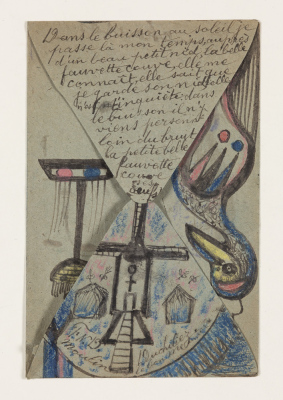 Dans le buisson, au soleil je
passe là mon temps, auprès
d'un beau petit nid, la belle
fauvette couve, elle me
connait, elle sait que
je garde son nid, elle
n'est inquiète dans
le buisson il n'y
viens personne
loin du bruyt
la petite belle
fauvette
couve
ses
œufs